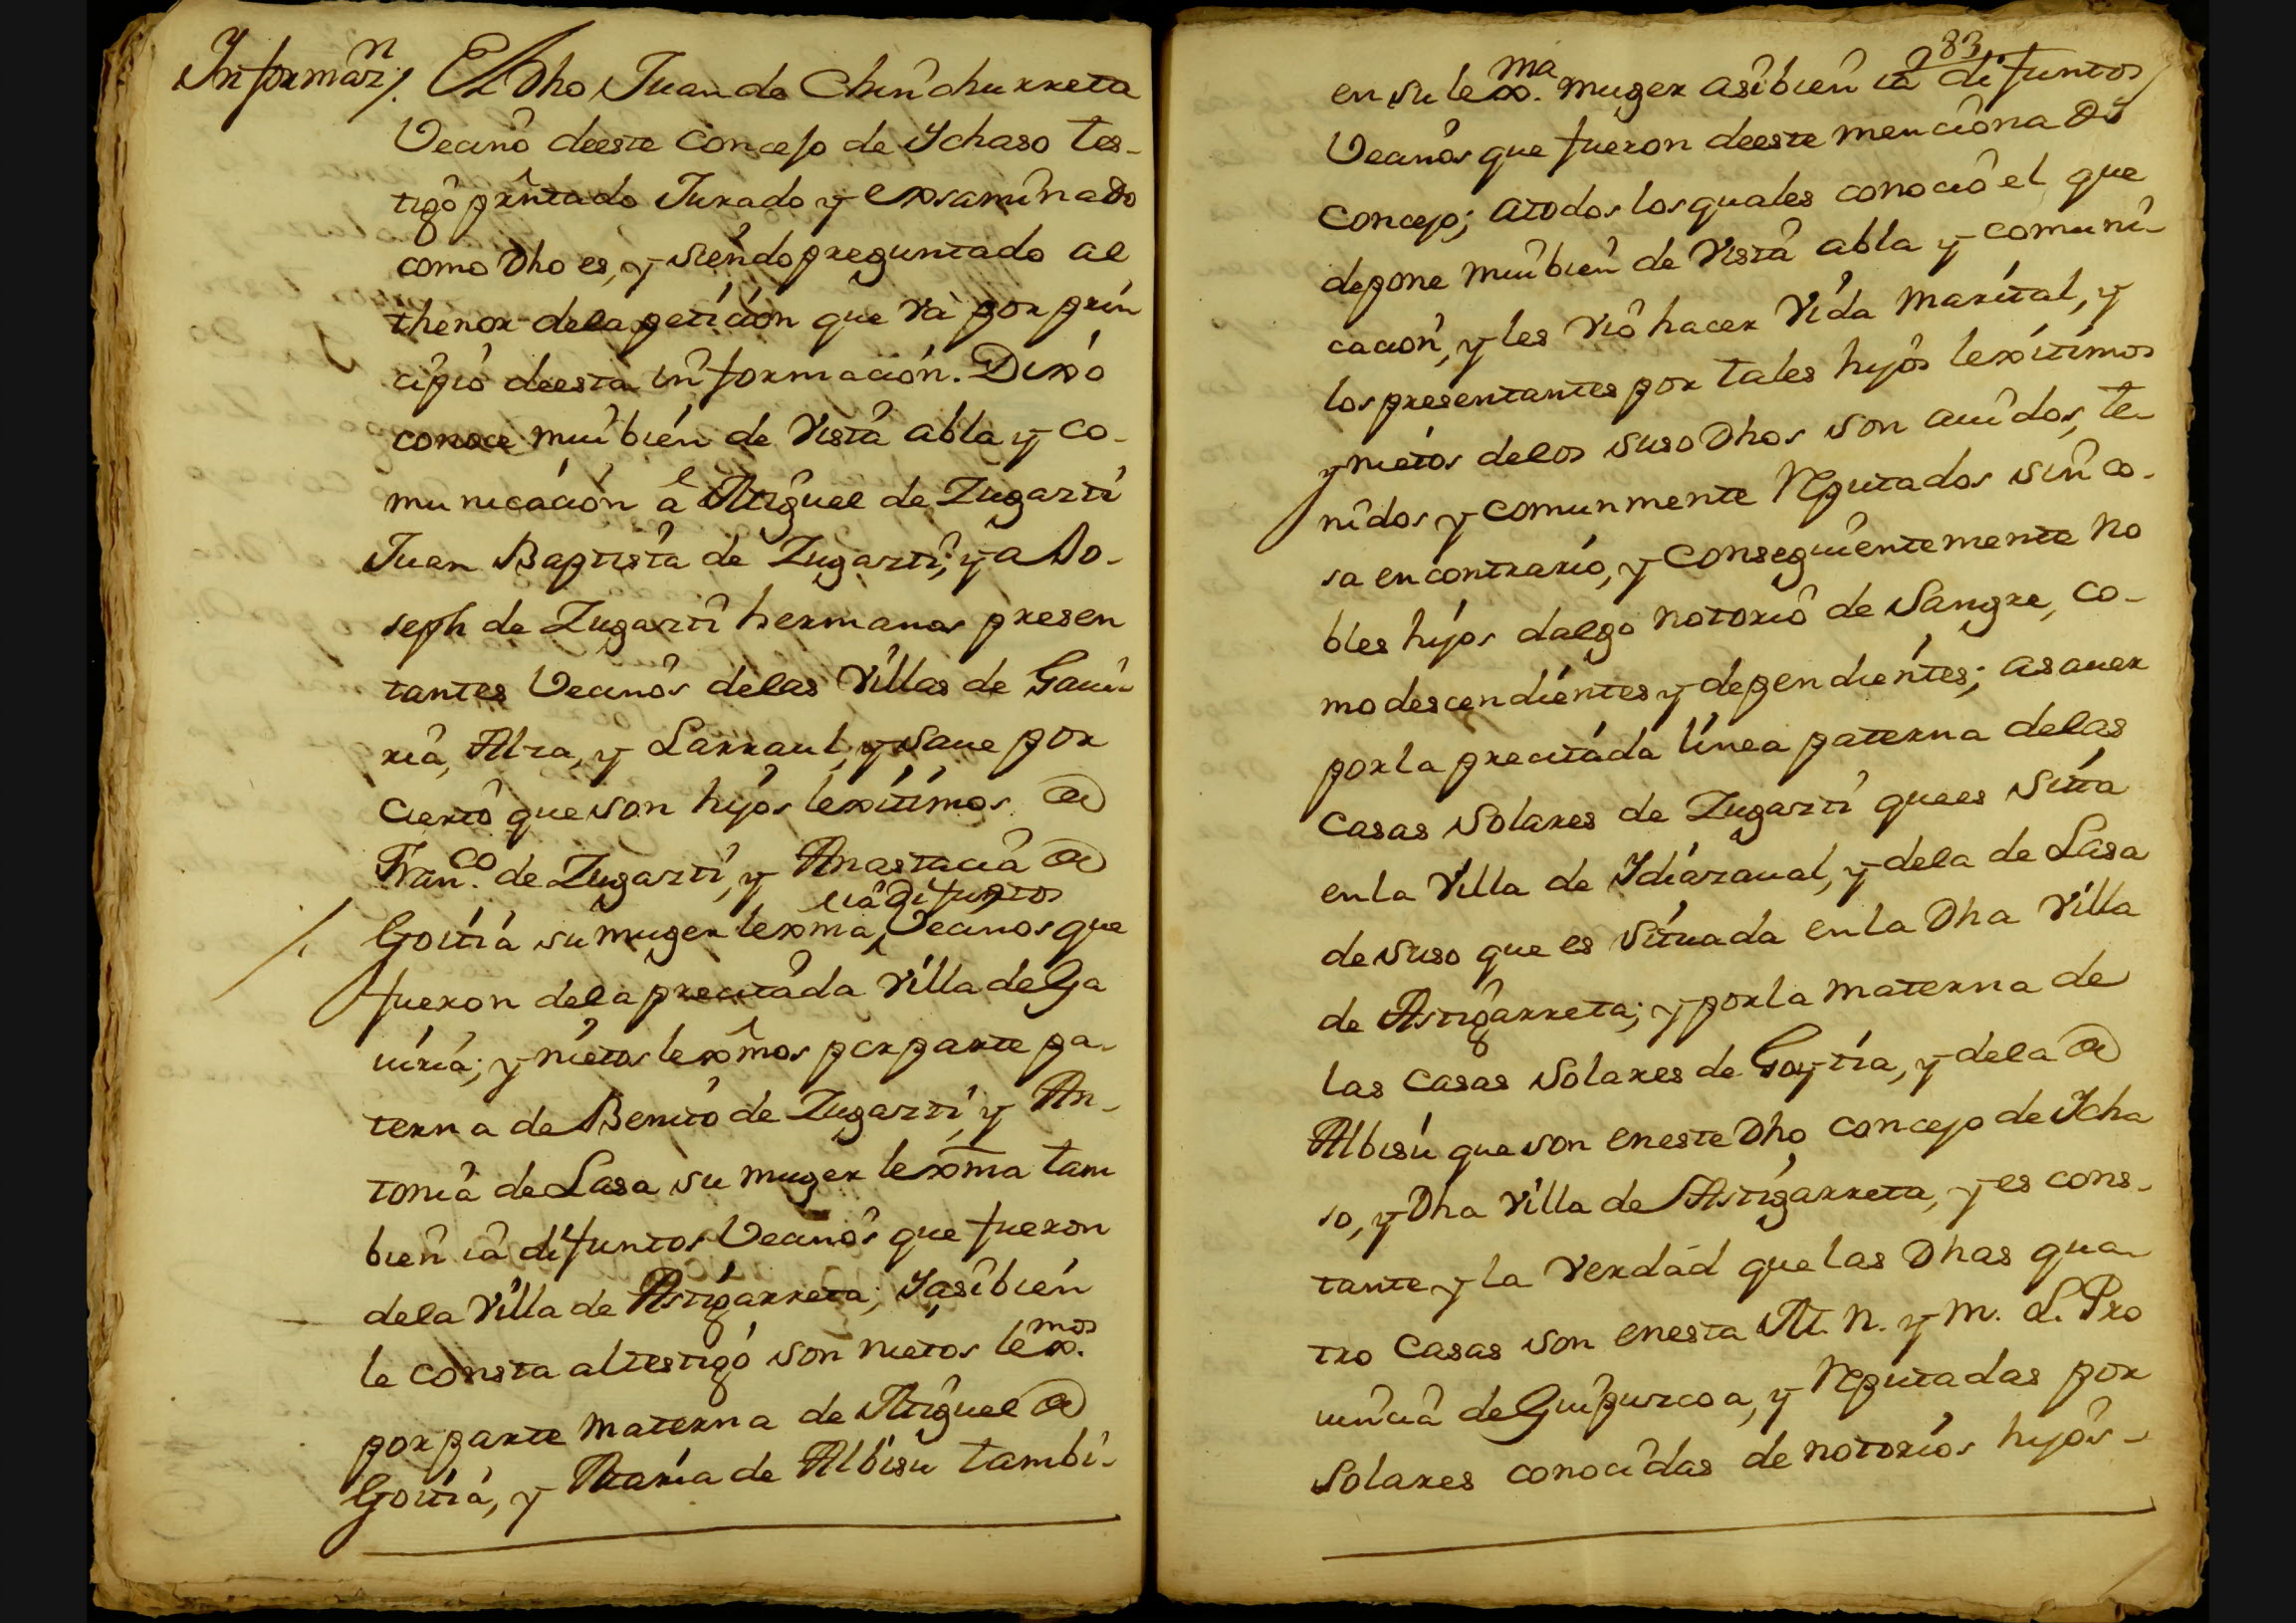 Informaz.n /. El Dho Juan de Chinchurreta
Vecino deeste Concejo de Ychaso tes-
tigo prêntado Jurado y exsaminado
como Dho es, y siendo preguntado al
thenor dela petición que và por prin
cipio deesta información. Dixo
conoce mui bien de Vista abla y co-
municación â Miguel de Zugazti
Juan Baptista de Zugazti, y a Jo-
seph de Zugazti hermanos presen
tantes Vecinos delas Villas de Gaui-
ria, Alza, y Larraul, y saue por
cierto que son hijos lexitimos de
Fran.co de Zugazti, y Anastacia de
ia Difuntos
/. Goitia su muger lexma, Vecinos que
fueron dela precitada Villa de Ga
uiria; y nietos lexmos por parte pa-
terna de Benito de Zugazti, y An-
tonia de Lasa su muger lexma tam
bien ia difuntos Vecinos que fueron
dela Villa de Astigarreta; Yasibien
le consta altestigo son nietos lex.mos
por parte materna de Miguel de
Goitia, y Maria de Albisu tambi-
283
en su lex.ma muger asibien ia difuntos
Vecinos que fueron deeste mencionado
Concejo; atodos los quales conoció el que
depone muibien de Vista abla y comuni-
cación, y les vió hacer Vida marital, y
los presentantes por tales hijos lexitimos
y nietos delos suso Dhos son auidos, te-
nidos y comunmente Reputados sin co-
sa en contrario, y conseguientemente no
bles hijos dalgo notorio de Sangre, co-
mo descendientes y dependientes; asauer
por la precitada línea paterna delas
Casas Solares de Zugazti quees sitta
en la Villa de Ydiazaual, y dela de Lasa
de suso que es situada en la Dha Villa
de Astigarreta; y por la materna de
las Casas Solares de Goytia, y dela de
Albisu que son eneste Dho Concejo de Icha
so, y Dha Villa de Astigarreta, y es cons-
tante y la Verdad que las Dhas qua-
tro Casas son enesta M. N. y M. L. Pro
uincia de Guipuzcoa, y Reputadas por
Solares conocidas de notorios hijos-